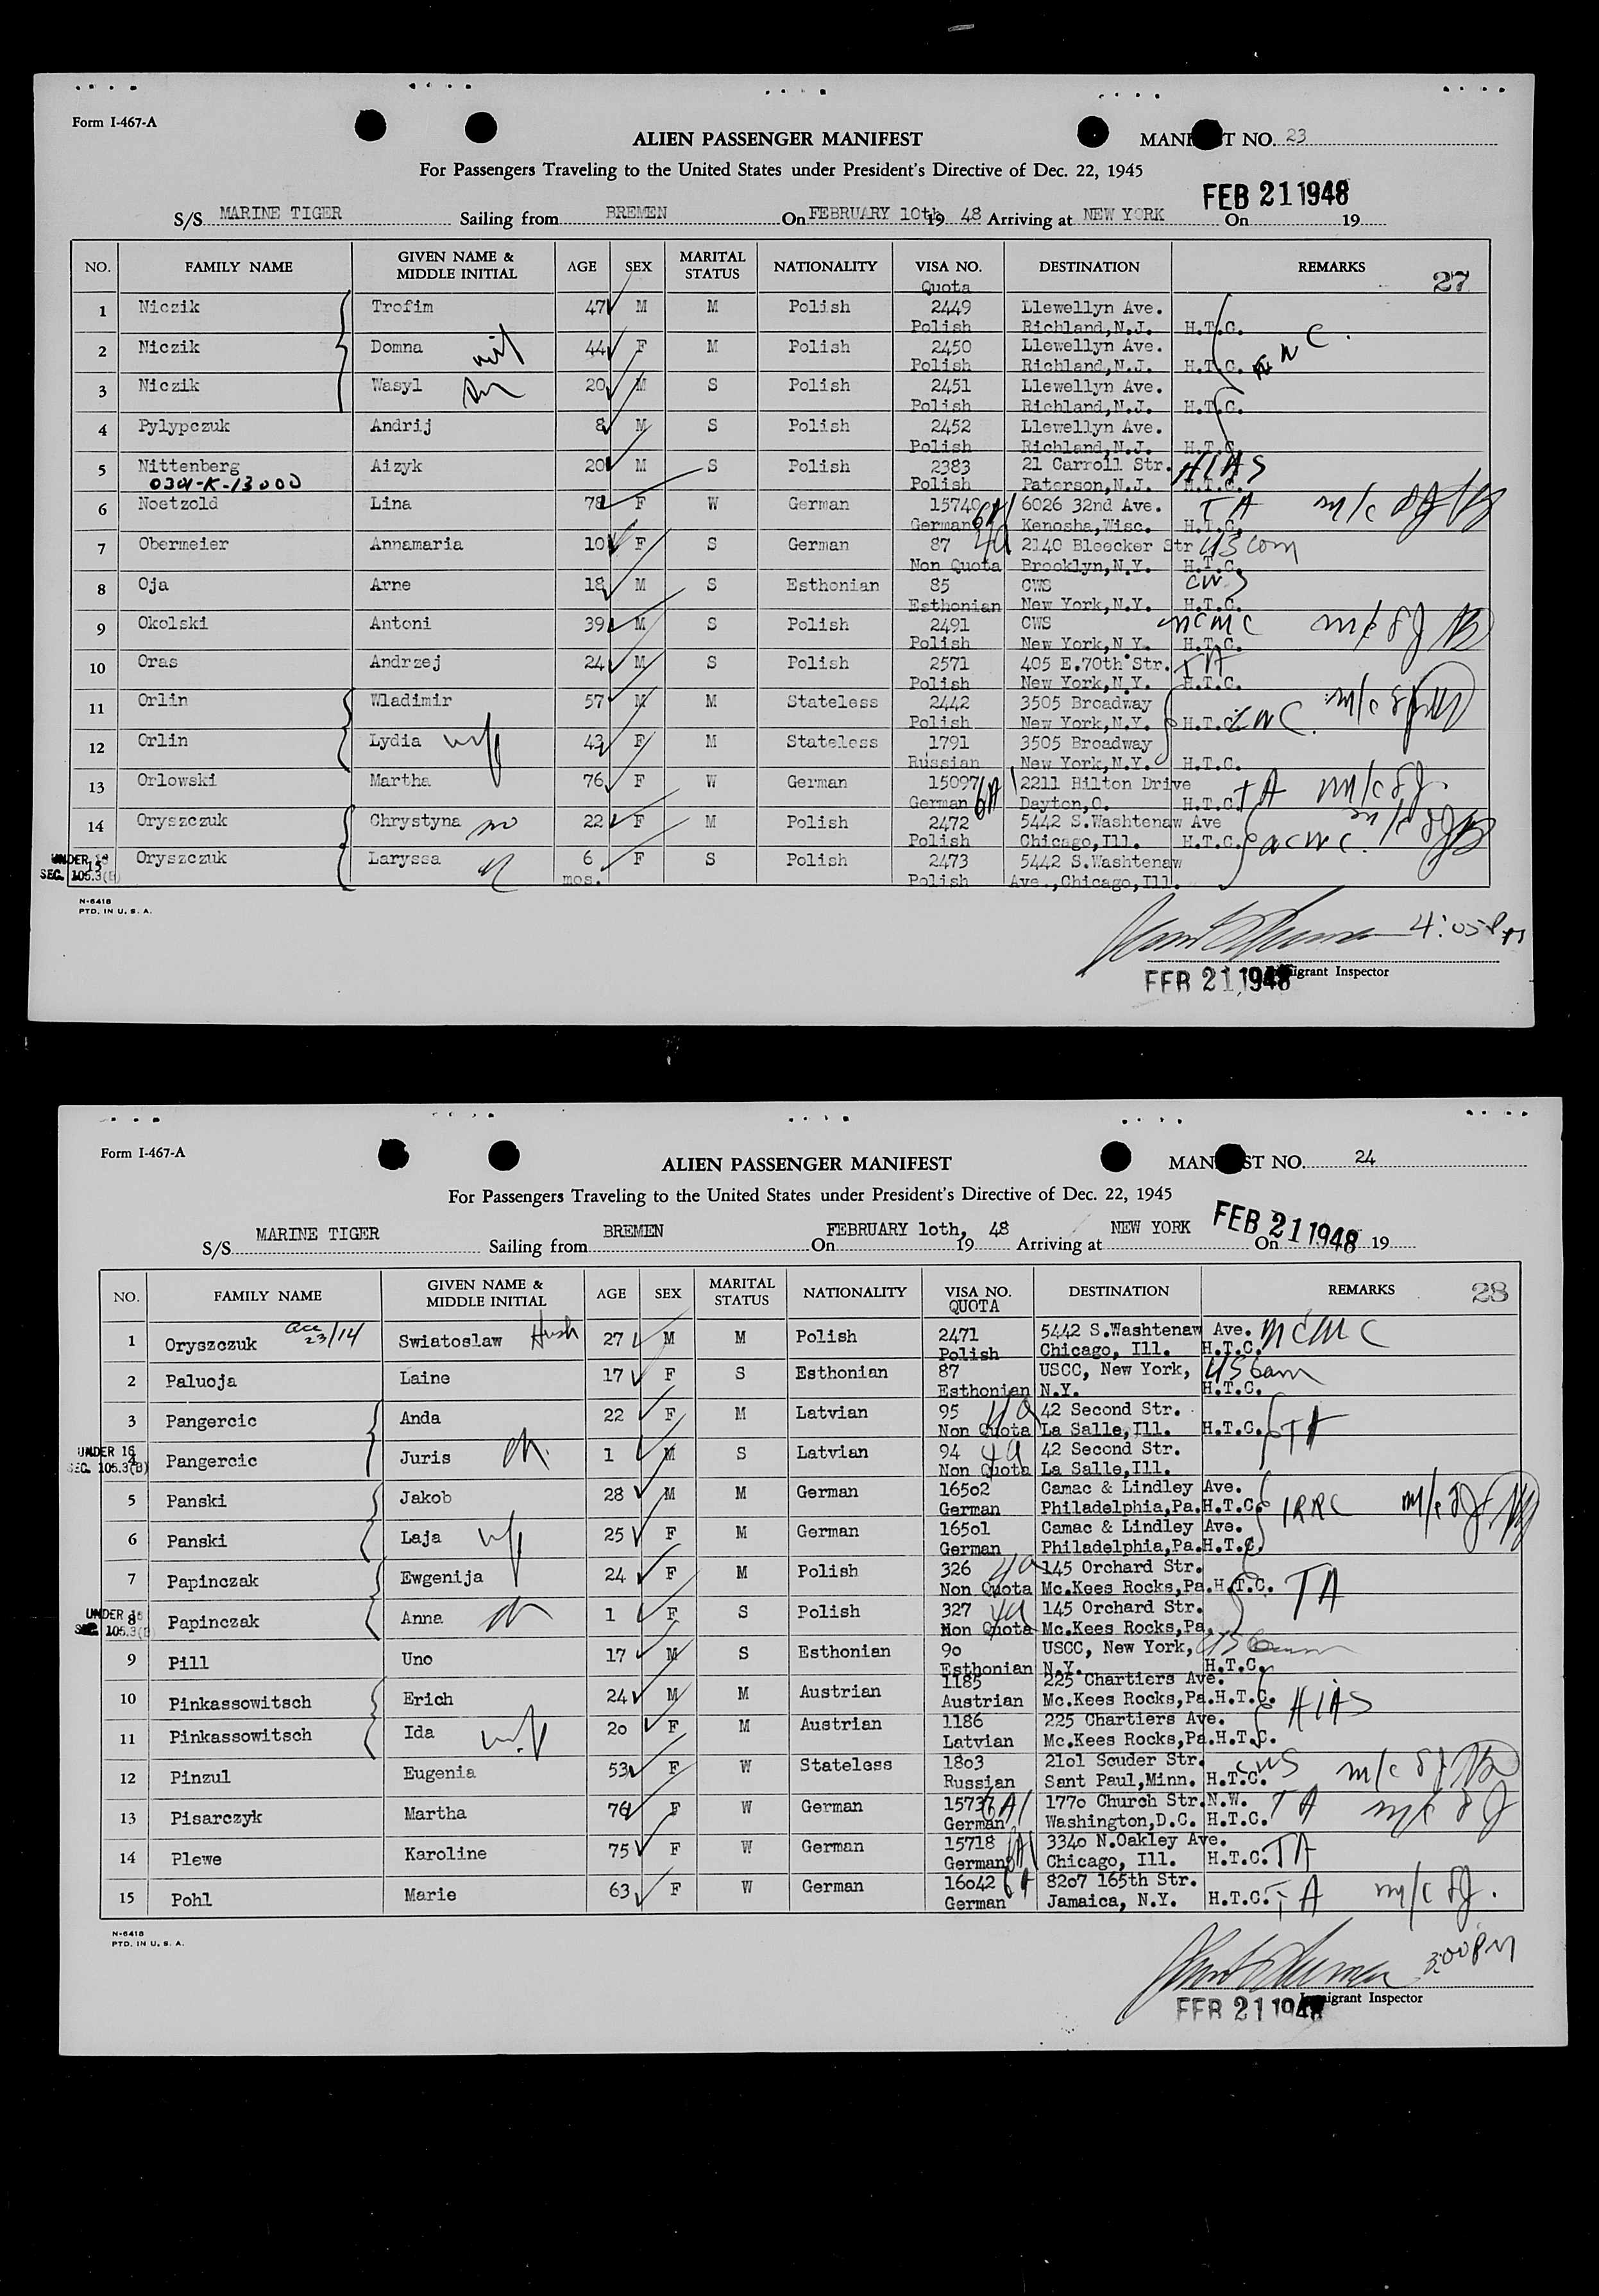 Form I-467-A
ALIEN PASSENGER MANIFEST
MANIFEST NO. 23
For Passengers Traveling to the United States under President's Directive of Dec. 22, 1945
FEB 21 1948
S/S MARINE TIGER Sailing from BREMEN On FEBRUARY 10th 19 48 Arriving at NEW YORK On 19
NO. FAMILY NAME GIVEN NAME & MIDDLE INITIAL AGE SEX MARITAL STATUS NATIONALITY VISA NO. Quota DESTINATION REMARKS 27
1 Niczik Trofim 47 M M Polish 2449 Llewellyn Ave.
Polish Richland,N.J. H.T.C.
2 Niczik Domna wif 44 F M Polish 2450 Llewellyn Ave.
Polish Richland,N.J. H.T.C.
3 Niczik Wasyl 20 M S Polish 2451 Llewellyn Ave.
Polish Richland,N.J. H.T.C.
4 Pylypczuk Andrij 8 M S Polish 2452 Llewellyn Ave.
Polish Richland,N.J. H.T.C.
5 Nittenberg Aizyk 20 M S Polish 2383 21 Carroll Str. HIAS
0301-K-13000 Polish Paterson,N.J. H.T.C.
6 Noetzold Lina 78 F W German 15740 6026 32nd Ave. TA m/c
German Kenosha,Wisc. H.T.C.
7 Obermeier Annamaria 10 F S German 87 4a 2140 Bleecker Str US com
Non Quota Brooklyn,N.Y. H.T.C.
8 Oja Arne 18 M S Esthonian 85 CWS CWS
Esthonian New York,N.Y. H.T.C.
9 Okolski Antoni 39 M S Polish 2491 CWS NCWC m/c
Polish New York,N.Y. H.T.C.
10 Oras Andrzej 24 M S Polish 2571 405 E.70th Str. TA
Polish New York,N.Y. H.T.C.
11 Orlin Wladimir 57 M M Stateless 2442 3505 Broadway m/c
Polish New York,N.Y. H.T.C.
12 Orlin Lydia wif 43 F M Stateless 1791 3505 Broadway
Russian New York,N.Y. H.T.C.
13 Orlowski Martha 76 F W German 15097 6A 2211 Hilton Drive TA m/c
German Dayton,O. H.T.C.
14 Oryszczuk Chrystyna 22 F M Polish 2472 5442 S.Washtenaw Ave m/c
Polish Chicago,Ill. H.T.C. NCWC
UNDER 16
15 Oryszczuk Laryssa 6 F S Polish 2473 5442 S.Washtenaw
SEC. 105.3(B) mos. Polish Ave.,Chicago,Ill.
N-6418
PTD. IN U. S. A.
4:05 PM
Immigrant Inspector
FEB 21 1948
Form I-467-A
ALIEN PASSENGER MANIFEST
MANIFEST NO. 24
For Passengers Traveling to the United States under President's Directive of Dec. 22, 1945
FEB 21 1948
S/S MARINE TIGER Sailing from BREMEN On FEBRUARY 1oth, 19 48 Arriving at NEW YORK On 19
NO. FAMILY NAME GIVEN NAME & MIDDLE INITIAL AGE SEX MARITAL STATUS NATIONALITY VISA NO. QUOTA DESTINATION REMARKS 28
1 Oryszczuk 23/14 Swiatoslaw Husb 27 M M Polish 2471 5442 S.Washtenaw Ave. NCWC
Polish Chicago, Ill. H.T.C.
2 Paluoja Laine 17 F S Esthonian 87 USCC, New York, US com
Esthonian N.Y. H.T.C.
3 Pangercic Anda 22 F M Latvian 95 4a 42 Second Str.
Non Quota La Salle,Ill. H.T.C. TA
UNDER 16
4 Pangercic Juris ch. 1 M S Latvian 94 4a 42 Second Str.
SEC. 105.3(B) Non Quota La Salle,Ill.
5 Panski Jakob 28 M M German 165o2 Camac & Lindley Ave.
German Philadelphia,Pa.H.T.C. IRRC m/c
6 Panski Laja wif 25 F M German 165o1 Camac & Lindley Ave.
German Philadelphia,Pa.H.T.C.
7 Papinczak Ewgenija 24 F M Polish 326 4a 145 Orchard Str.
Non Quota Mc.Kees Rocks,Pa.H.T.C. TA
UNDER 16
8 Papinczak Anna ch 1 F S Polish 327 4a 145 Orchard Str.
SEC. 105.3(B) Non Quota Mc.Kees Rocks,Pa.
9 Pill Uno 17 M S Esthonian 9o USCC, New York,
Esthonian N.Y. H.T.C.
10 Pinkassowitsch Erich 24 M M Austrian 1185 225 Chartiers Ave.
Austrian Mc.Kees Rocks,Pa.H.T.C. HIAS
11 Pinkassowitsch Ida wif 2o F M Austrian 1186 225 Chartiers Ave.
Latvian Mc.Kees Rocks,Pa.H.T.C.
12 Pinzul Eugenia 53 F W Stateless 18o3 21o1 Scuder Str. CWS m/c
Russian Sant Paul,Minn. H.T.C.
13 Pisarczyk Martha 76 F W German 15737 6A 177o Church Str.N.W. TA m/c
German Washington,D.C. H.T.C.
14 Plewe Karoline 75 F W German 15718 334o N.Oakley Ave.
German Chicago, Ill. H.T.C. TA
15 Pohl Marie 63 F W German 16o42 82o7 165th Str.
German Jamaica, N.Y. H.T.C. TA m/c
N-6418
PTD. IN U. S. A.
3:00 PM
Immigrant Inspector
FEB 21 1948